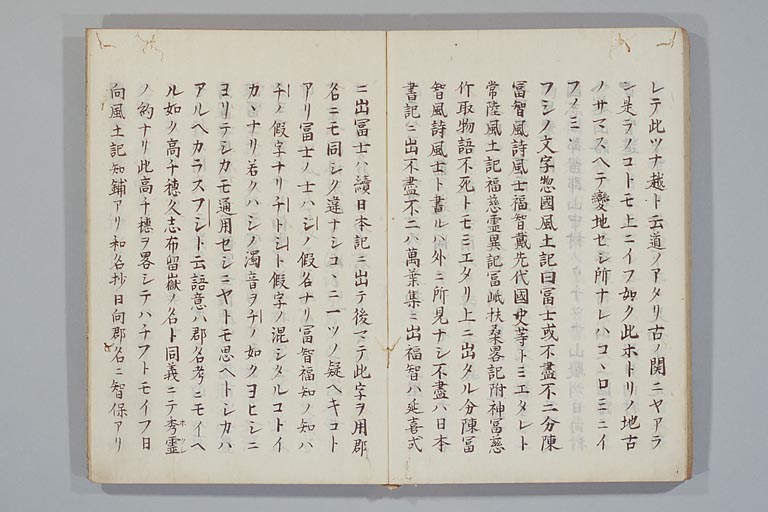 レテ此ツナ越ト云道ノアタリ古ノ關ニヤアラ
ン是ラノコトモ上ニイフ如ク此ホトリノ地古
ノサマスヘテ變地セシ所ナレハコヽロミニイ
フノミ
フシノ文字惣國風土記曰冨士或不盡不二分陳
冨智風詩風士福智戴先代國史等トミエタレト
常陸風土記福慈靈異記冨岻扶桑畧記附神冨慈
竹取物語不死トモミエタリ上ニ出タル分陳冨
智風詩風士ト書ルハ外ニ所見ナシ不盡ハ日本
書記ニ出不盡不二ハ萬葉集ニ出福智ハ延喜式
ニ出冨士ハ續日本記ニ出テ後マテ此字ヲ用郡
名ニモ同シク違ナシコヽニ一ツノ疑ヘキコト
アリ冨士ノ士ハシノ假名ナリ冨智福知ノ知ハ
チノ假字ナリチトシト假字ノ混シタルコトイ
カヽナリ若クハシノ濁音ヲチノ如クヨヒシニ
ヨリテシカモ通用セシニヤトモ思ヘトシカハ
アルヘカラスフシト云語意ハ郡名考ニモイヘ
ル如ク高千穂久志布留嶽ノ名ト同義ニテ考靈
ノ約ナリ此高千穗ヲ畧シテハチフトモイフ日
向風土記知鋪アリ和名抄日向郡名ニ智保アリ